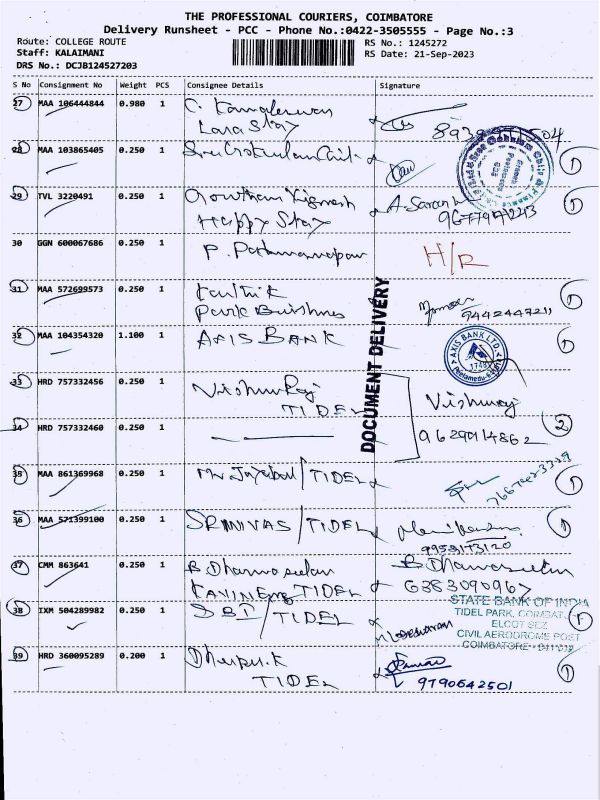 THE PROFESSIONAL COURIERS, COIMBATORE
Delivery Runsheet - PCC - Phone No.:0422-3505555 - Page No.:3
Route: COLLEGE ROUTE
RS No.: 1245272
Staff: KALAIMANI
RS Date: 21-Sep-2023
DRS No.: DCJB124527203
S No Consignment No Weight PCS Consignee Details Signature
27 MAA 106444844 0.980 1
28 MAA 103865405 0.250 1
29 TVL 3220491 0.250 1 A. Saran
Happy Stay
30 GGN 600067686 0.250 1 P. H/R
31 MAA 572699573 0.250 1 Karthik
Park 9442447211
32 MAA 104354320 1.100 1 AXIS BANK
AXIS BANK LTD.
DOCUMENT DELIVERY
33 HRD 757332456 0.250 1 VishnuRaj Vishnuraj
TIDEL
34 HRD 757332460 0.250 1 9629014862 2
35 MAA 861369968 0.250 1 Mr / TIDEL
36 MAA 571399100 0.250 1 SRINIVAS / TIDEL
9953173120
37 CMM 863641 0.250 1 B. Dharmaseelan B Dharmaseelan
TIDEL 638309096
38 IXM 504289982 0.250 1 SBI / TIDEL
STATE BANK OF INDIA
TIDEL PARK,
ELCOT SEZ
CIVIL AERODROME POST
COIMBATORE
39 HRD 360095289 0.200 1
TIDEL 9790642501